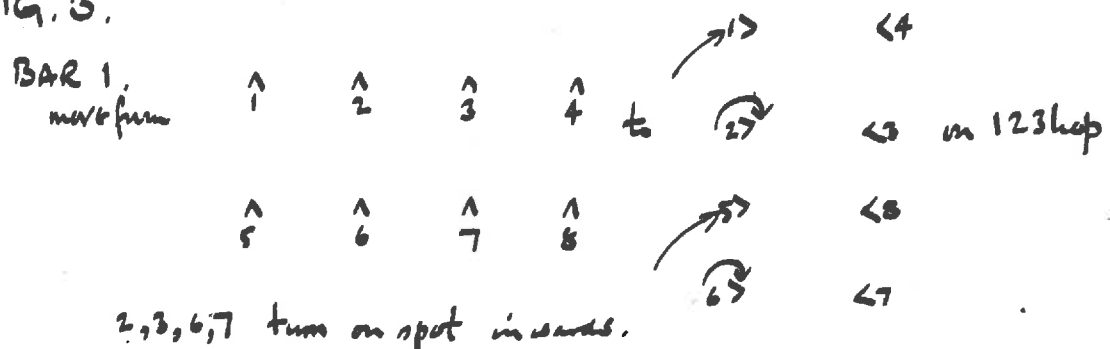 FIG. 3.
1> <4
BAR 1.
move from ^1 ^2 ^3 ^4 to 2> <3 on 123hop
^5 ^6 ^7 ^8 5> <8
6> <7
2,3,6,7 turn on spot inwards.